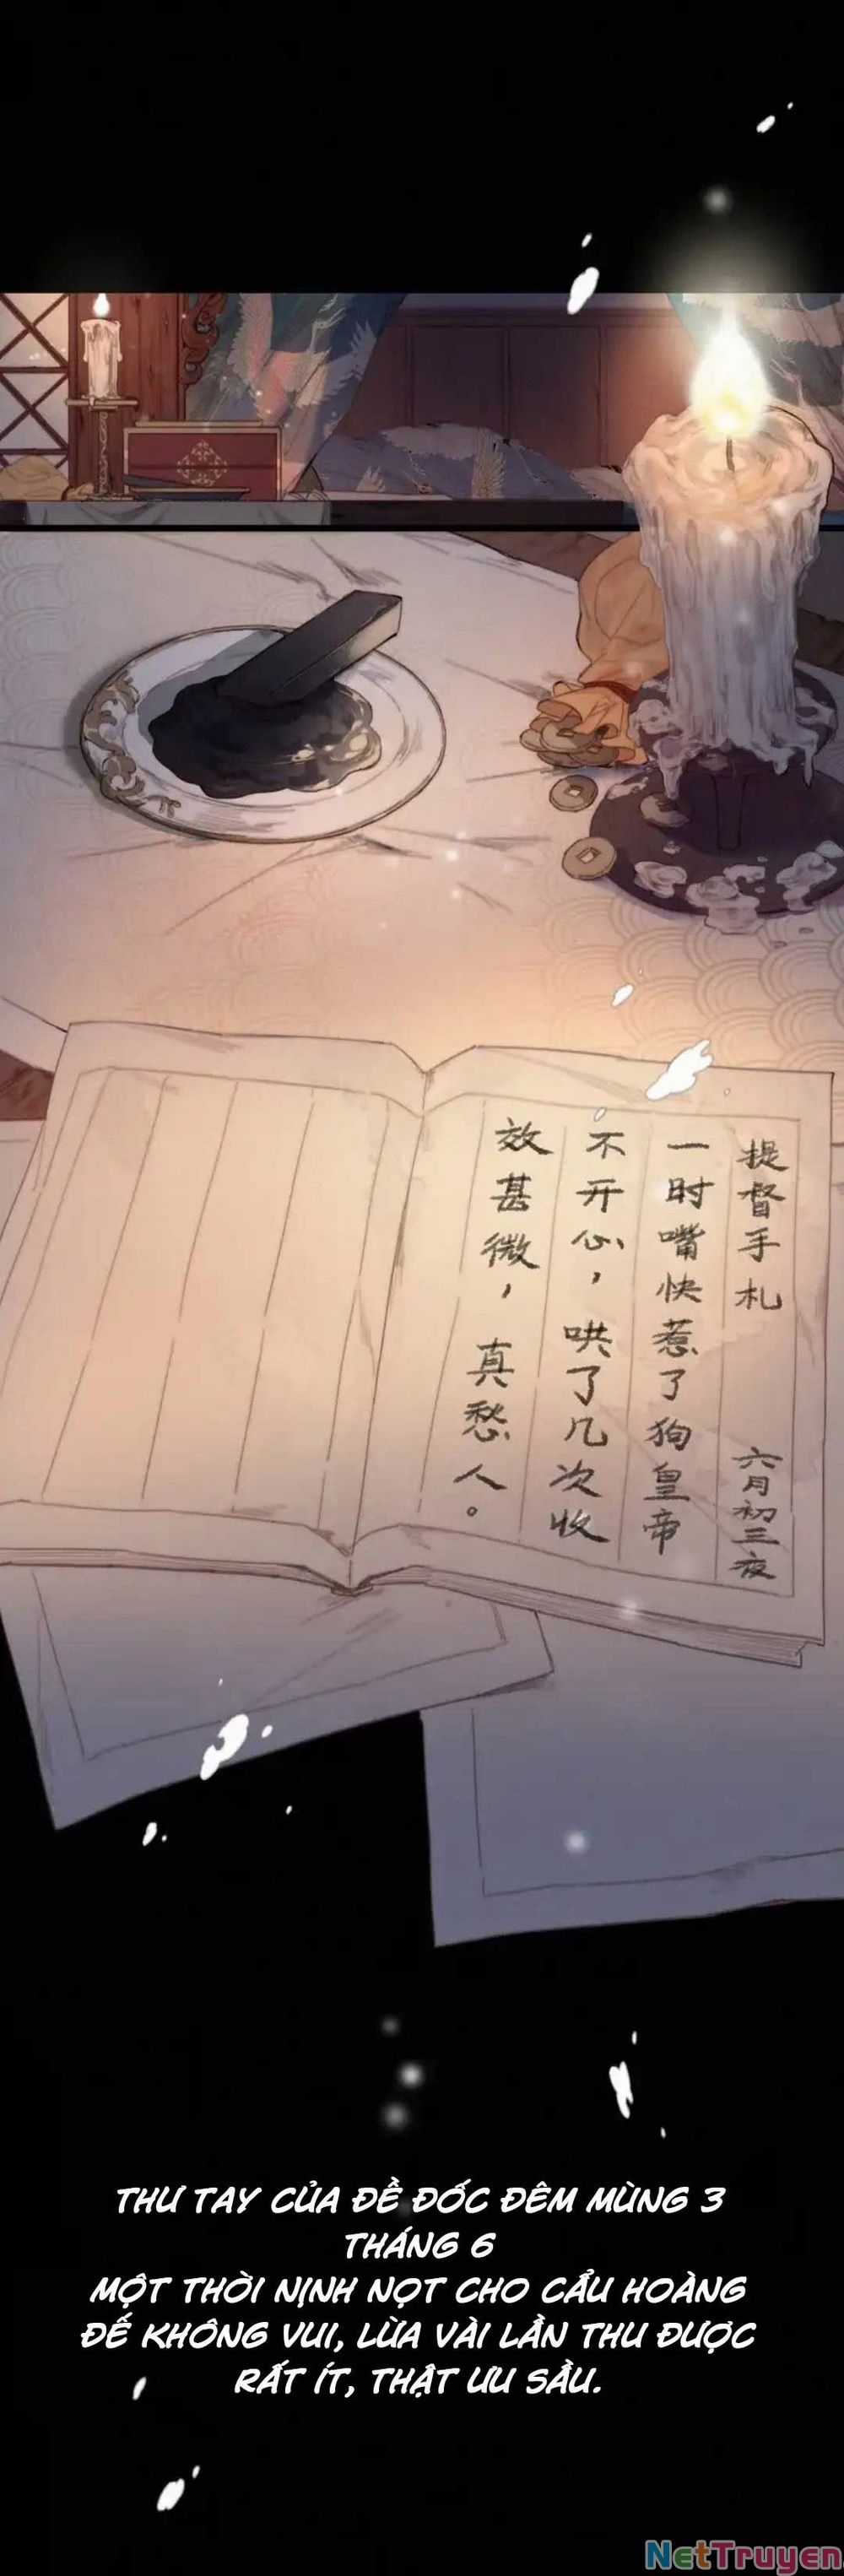 提督手札 六月初三夜
一时嘴快惹了狗皇帝
不开心，哄了几次收
效甚微，真愁人。
THƯ TAY CỦA ĐỀ ĐỐC ĐÊM MÙNG 3
THÁNG 6
MỘT THỜI NỊNH NỌT CHO CẨU HOÀNG
ĐẾ KHÔNG VUI, LỪA VÀI LẦN THU ĐƯỢC
RẤT ÍT, THẬT ƯU SẦU.
NetTruyen